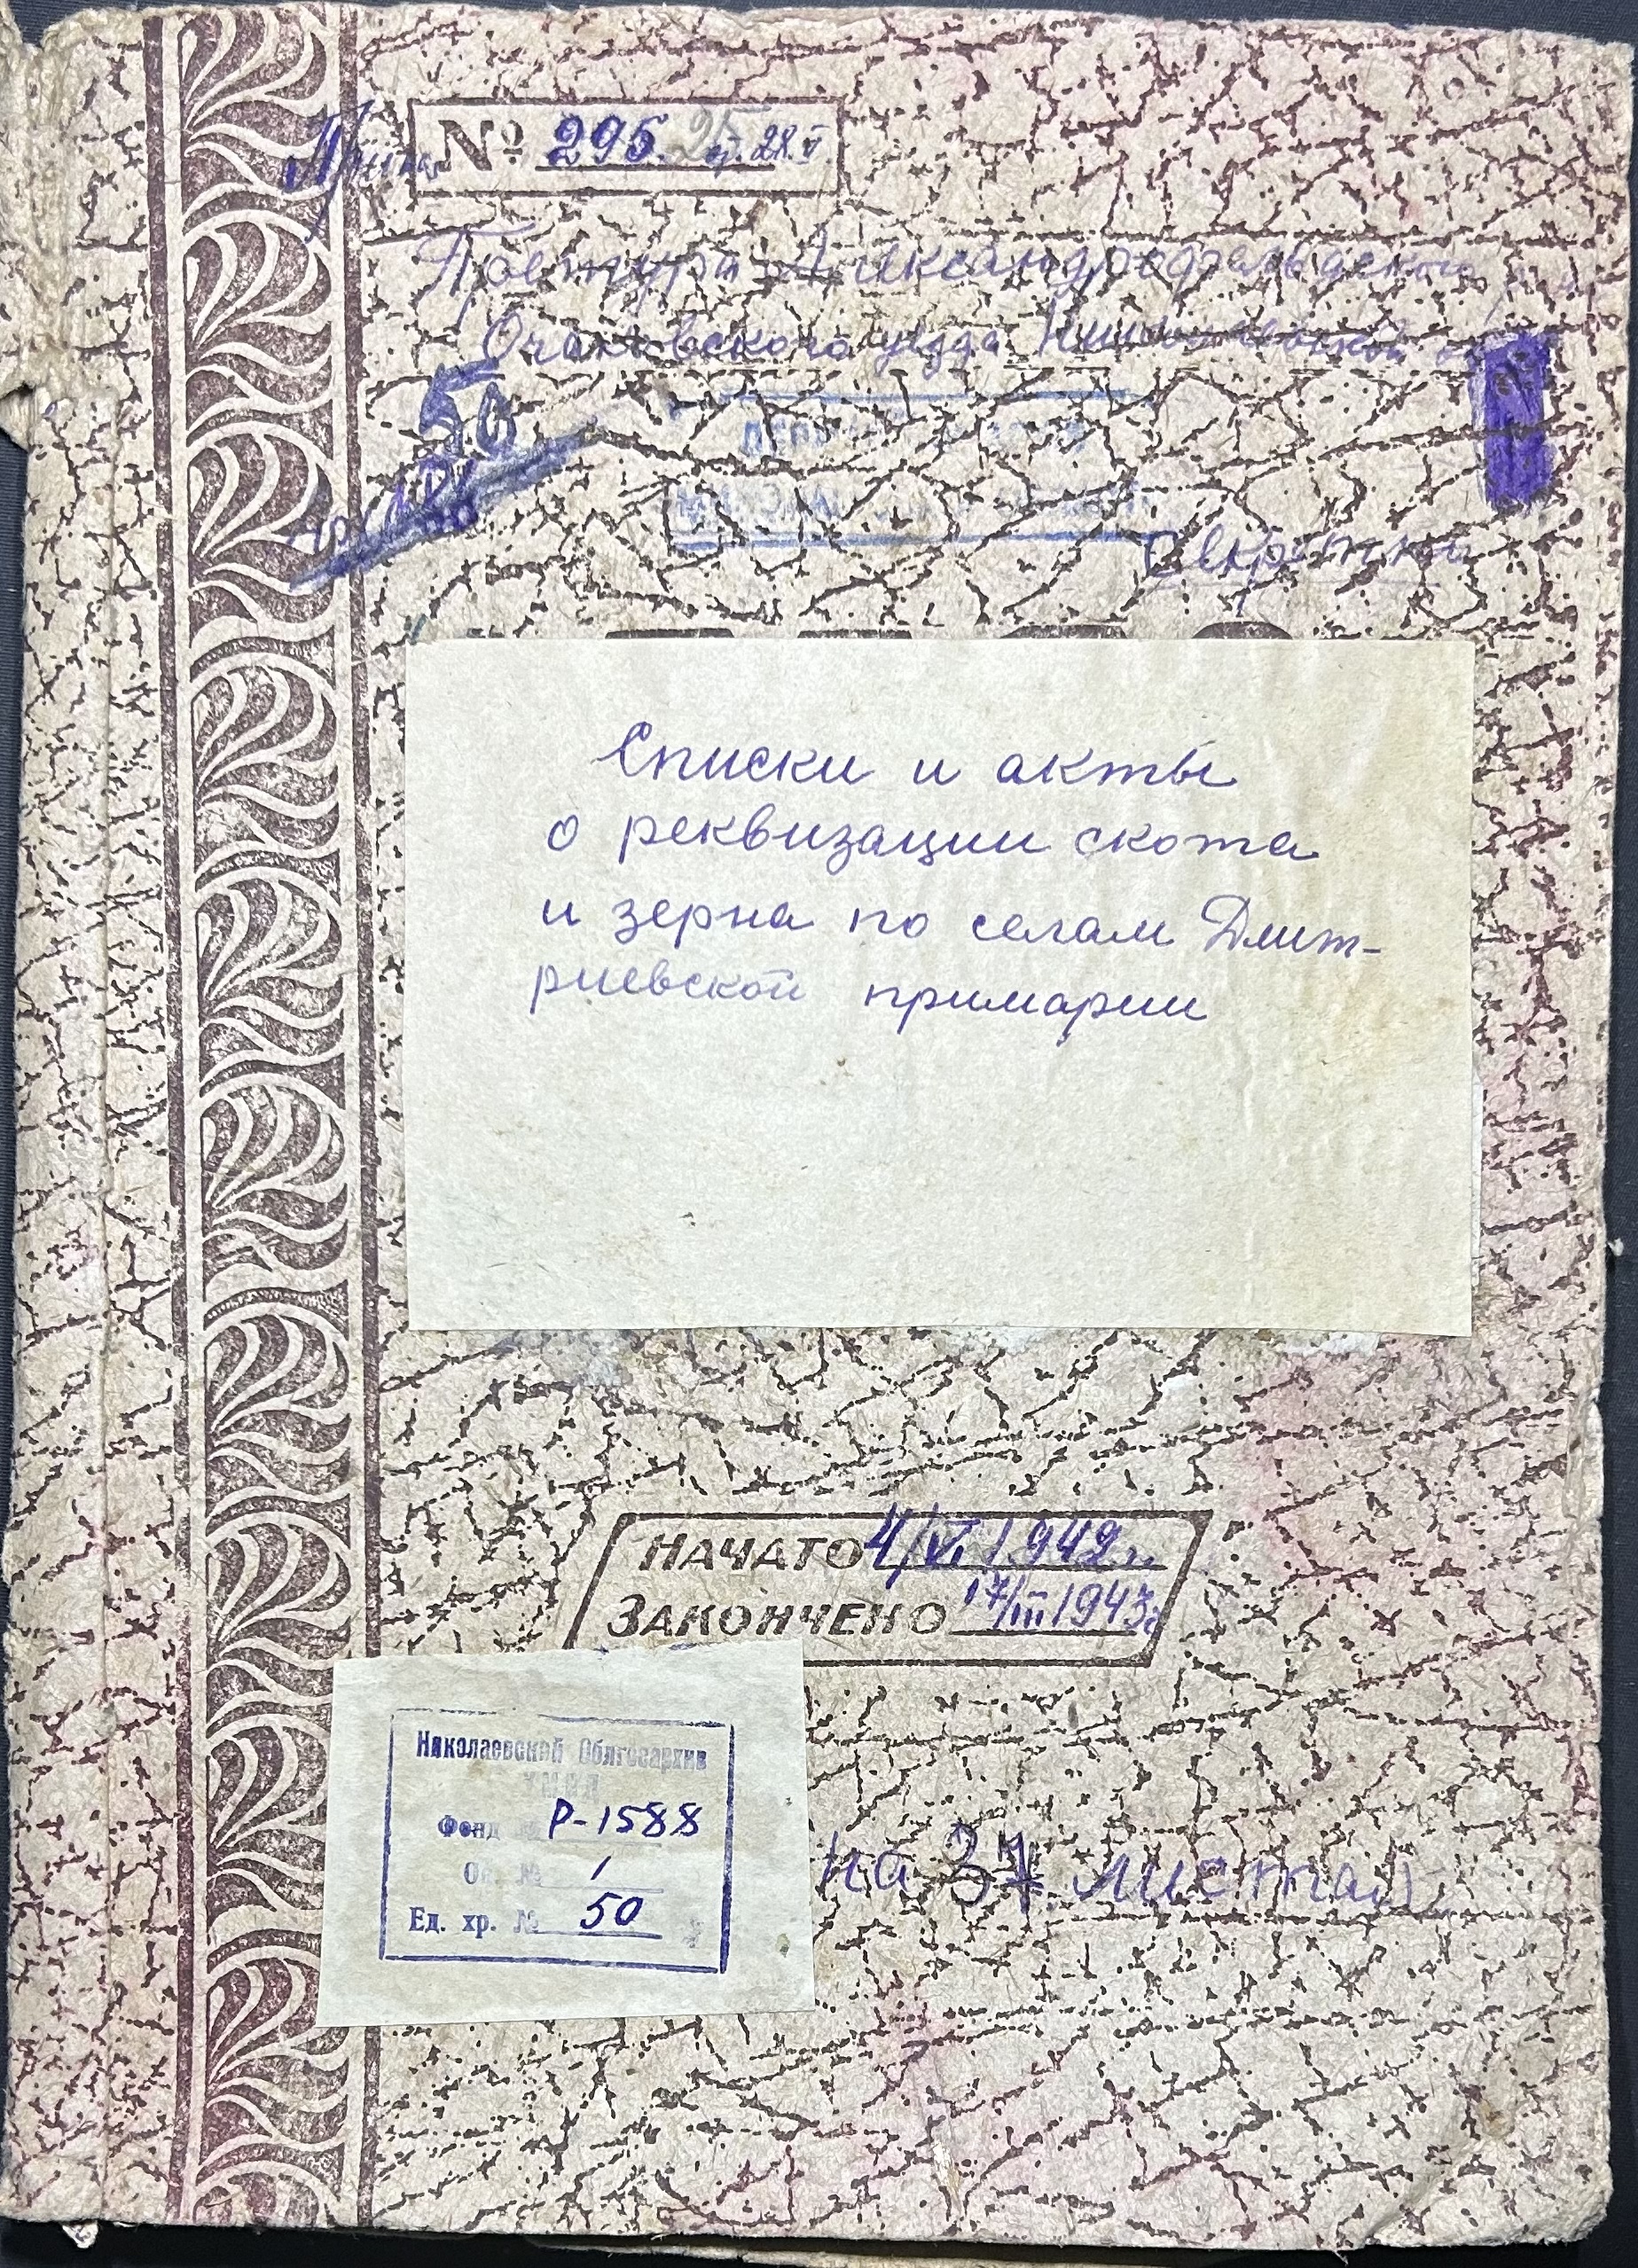 № 295. 25 от. 28.V
Претура Александродгальдского
Очаковского уезда
50
Секретно
Списки и акты
о реквизации скота
и зерна по селам Дмит-
риевской примарии
НАЧАТО 4/VI 1942 г.
ЗАКОНЧЕНО 17/III 1943 г
Николаевский Облгосархив
Фонд № Р-1588
Оп. № 1
Ед. хр. № 50
на 37 листах